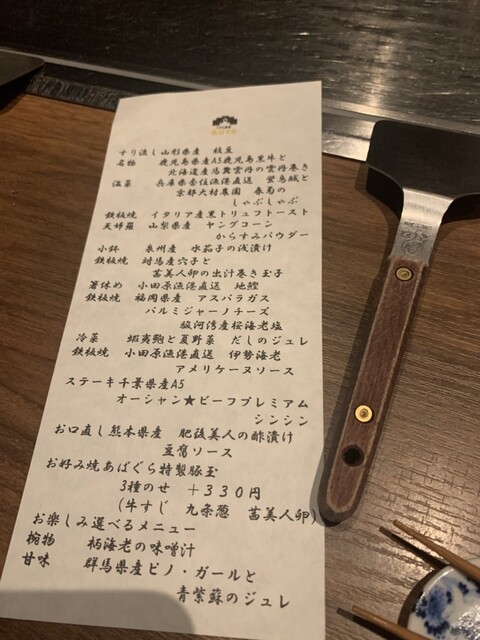 すり流し 山形県産 枝豆
名物 鹿児島県産A5鹿児島黒牛と
北海道産馬糞雲丹の雲丹巻き
温菜 兵庫県香住漁港直送 蛍烏賊と
京都大村農園 春菊の
しゃぶしゃぶ
鉄板焼 イタリア産黒トリュフトースト
天婦羅 山梨県産 ヤングコーン
からすみパウダー
小鉢 泉州産 水茄子の浅漬け
鉄板焼 対馬産穴子と
茜美人卵の出汁巻き玉子
箸休め 小田原漁港直送 地鰹
鉄板焼 福岡県産 アスパラガス
パルミジャーノチーズ
駿河湾産桜海老塩
冷菜 蝦夷鮑と夏野菜 だしのジュレ
鉄板焼 小田原漁港直送 伊勢海老
アメリケーヌソース
ステーキ千葉県産A5
オーシャン★ビーフプレミアム
シンシン
お口直し熊本県産 肥後美人の酢漬け
豆腐ソース
お好み焼あばぐら特製豚玉
3種のせ +330円
(牛すじ 九条葱 茜美人卵)
お楽しみ選べるメニュー
椀物 柄海老の味噌汁
甘味 群馬県産ピノ・ガールと
青紫蘇のジュレ